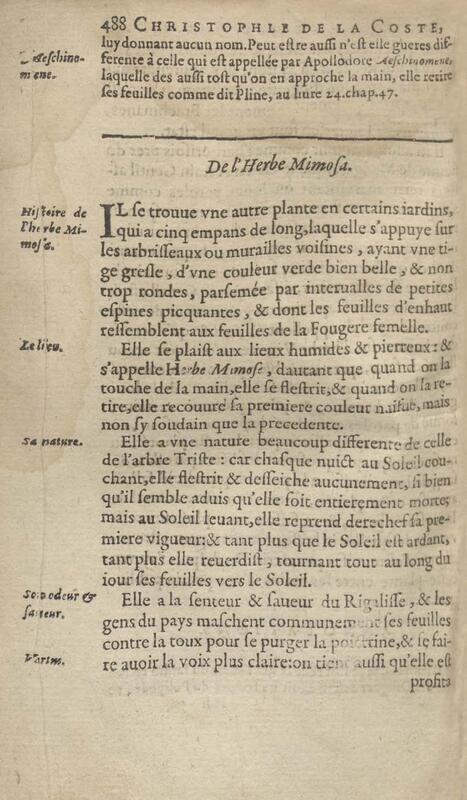 488 CHRISTOPHLE DE LA COSTE,
luy donnant aucun nom. Peut estre aussi n'est elle gueres dif-
L'Aeschino-
mene.
ferente à celle qui est appellée par Apollodore Aeschinomene,
laquelle des aussi tost qu'on en approche la main, elle retire
ses feuilles comme dit Pline, au liure 24. chap. 47.
De l'Herbe Mimosa.
Histoire de
l'herbe Mi-
mosa.
IL se trouue vne autre plante en certains iardins,
qui a cinq empans de long, laquelle s'appuye sur
les arbrisseaux ou murailles voisines, ayant vne ti-
ge gresle, d'vne couleur verde bien belle, & non
trop rondes, parsemée par interualles de petites
espines picquantes, & dont les feuilles d'enhaut
ressemblent aux feuilles de la Fougere femelle.
Le lieu.
Elle se plaist aux lieux humides & pierreux: &
s'appelle Herbe Mimose, dautant que quand on la
touche de la main, elle se flestrit, & quand on la re-
tire, elle recouure sa premiere couleur naifue, mais
non sy soudain que la precedente.
Sa nature.
Elle a vne nature beaucoup differente de celle
de l'arbre Triste: car chasque nuict au Soleil cou-
chant, elle flestrit & desseiche aucunement, si bien
qu'il semble aduis qu'elle soit entierement morte;
mais au Soleil leuant, elle reprend derechef sa pre-
miere vigueur: & tant plus que le Soleil est ardant,
tant plus elle reuerdist, tournant tout au long du
iour ses feuilles vers le Soleil.
Son odeur &
saueur.
Elle a la senteur & saueur du Rigalisse, & les
gens du pays maschent communement ses feuilles
contre la toux pour se purger la poictrine, & se fai-
Vertus.
re auoir la voix plus claire: on tient aussi qu'elle est
profita